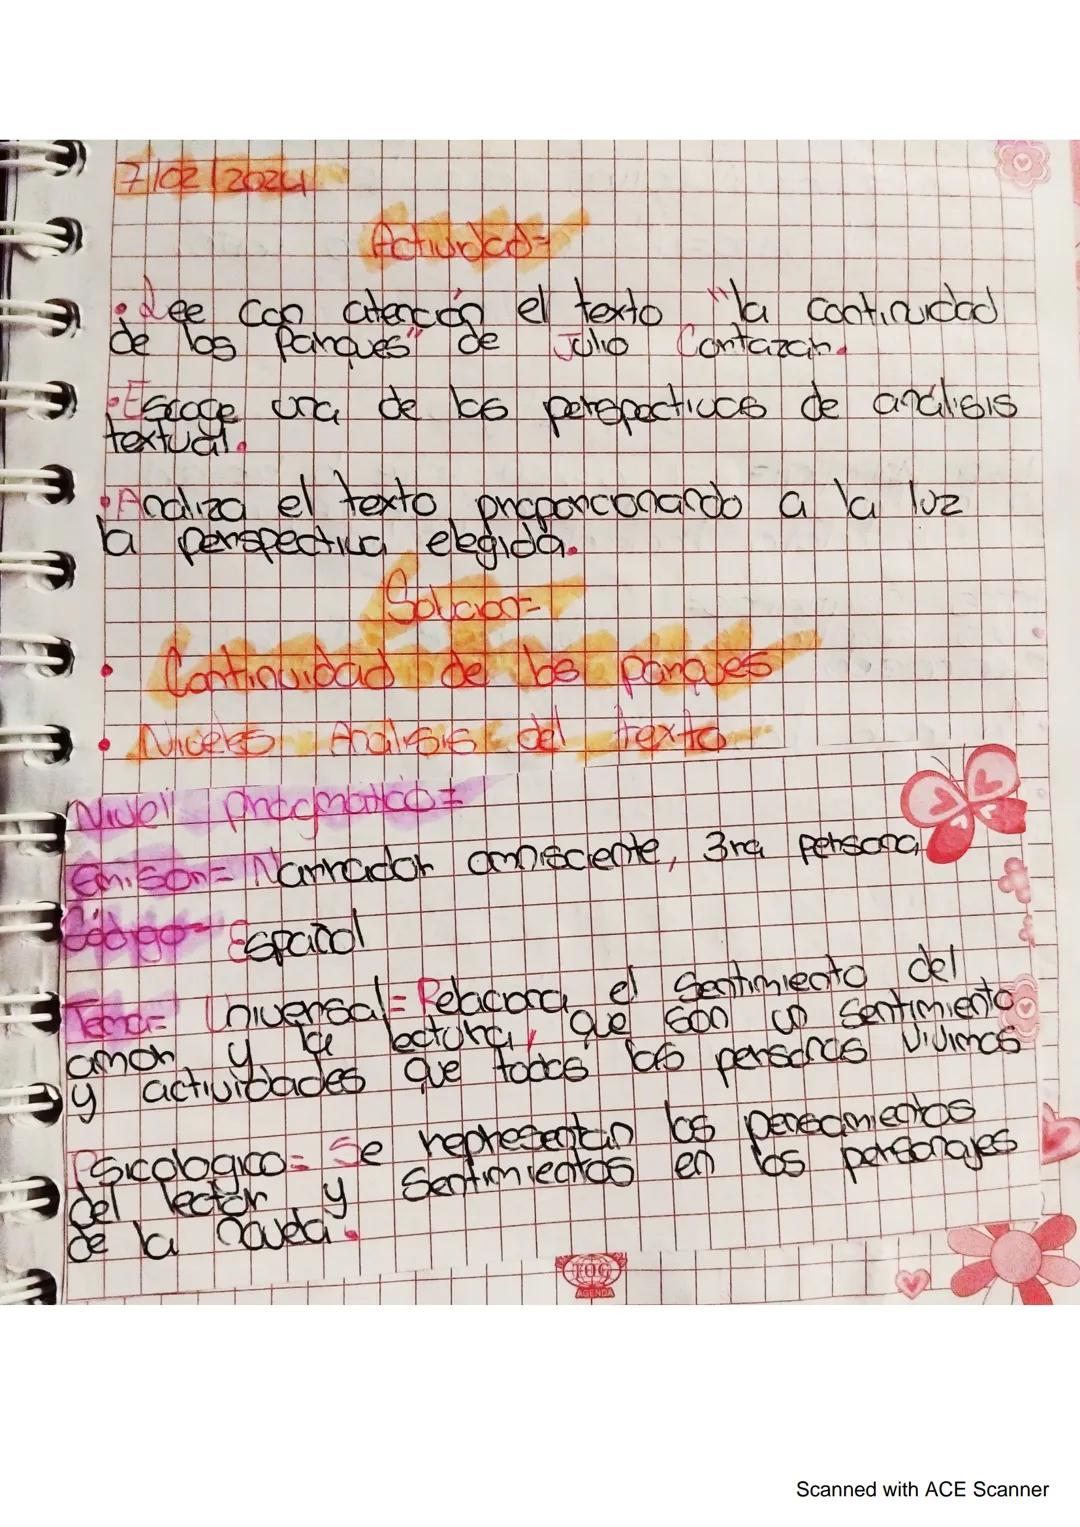 7/02/2024
Actividad=
• Lee con atención el texto "la continuidad
de los parques" de Julio Cortazar.
• Escoge una de las perspectivas de análisis
textual.
• Analiza el texto proporcionando a la luz
la perspectiva elegida.
Solucion=
• Continuidad de los parques
• Niveles Analisis del texto
Nivel pragmatico=
emisor= Narrador omnisciente, 3ra persona
Código= Español
Tema= Universal= Relaciona el sentimiento del
amor y la lectura, que son un sentimiento
y actividades que todos las personas vivimos
Psicologico= Se representan los pensamientos
del lector y sentimientos en los personajes
de la novela.
TOG
AGENDA
Scanned with ACE Scanner